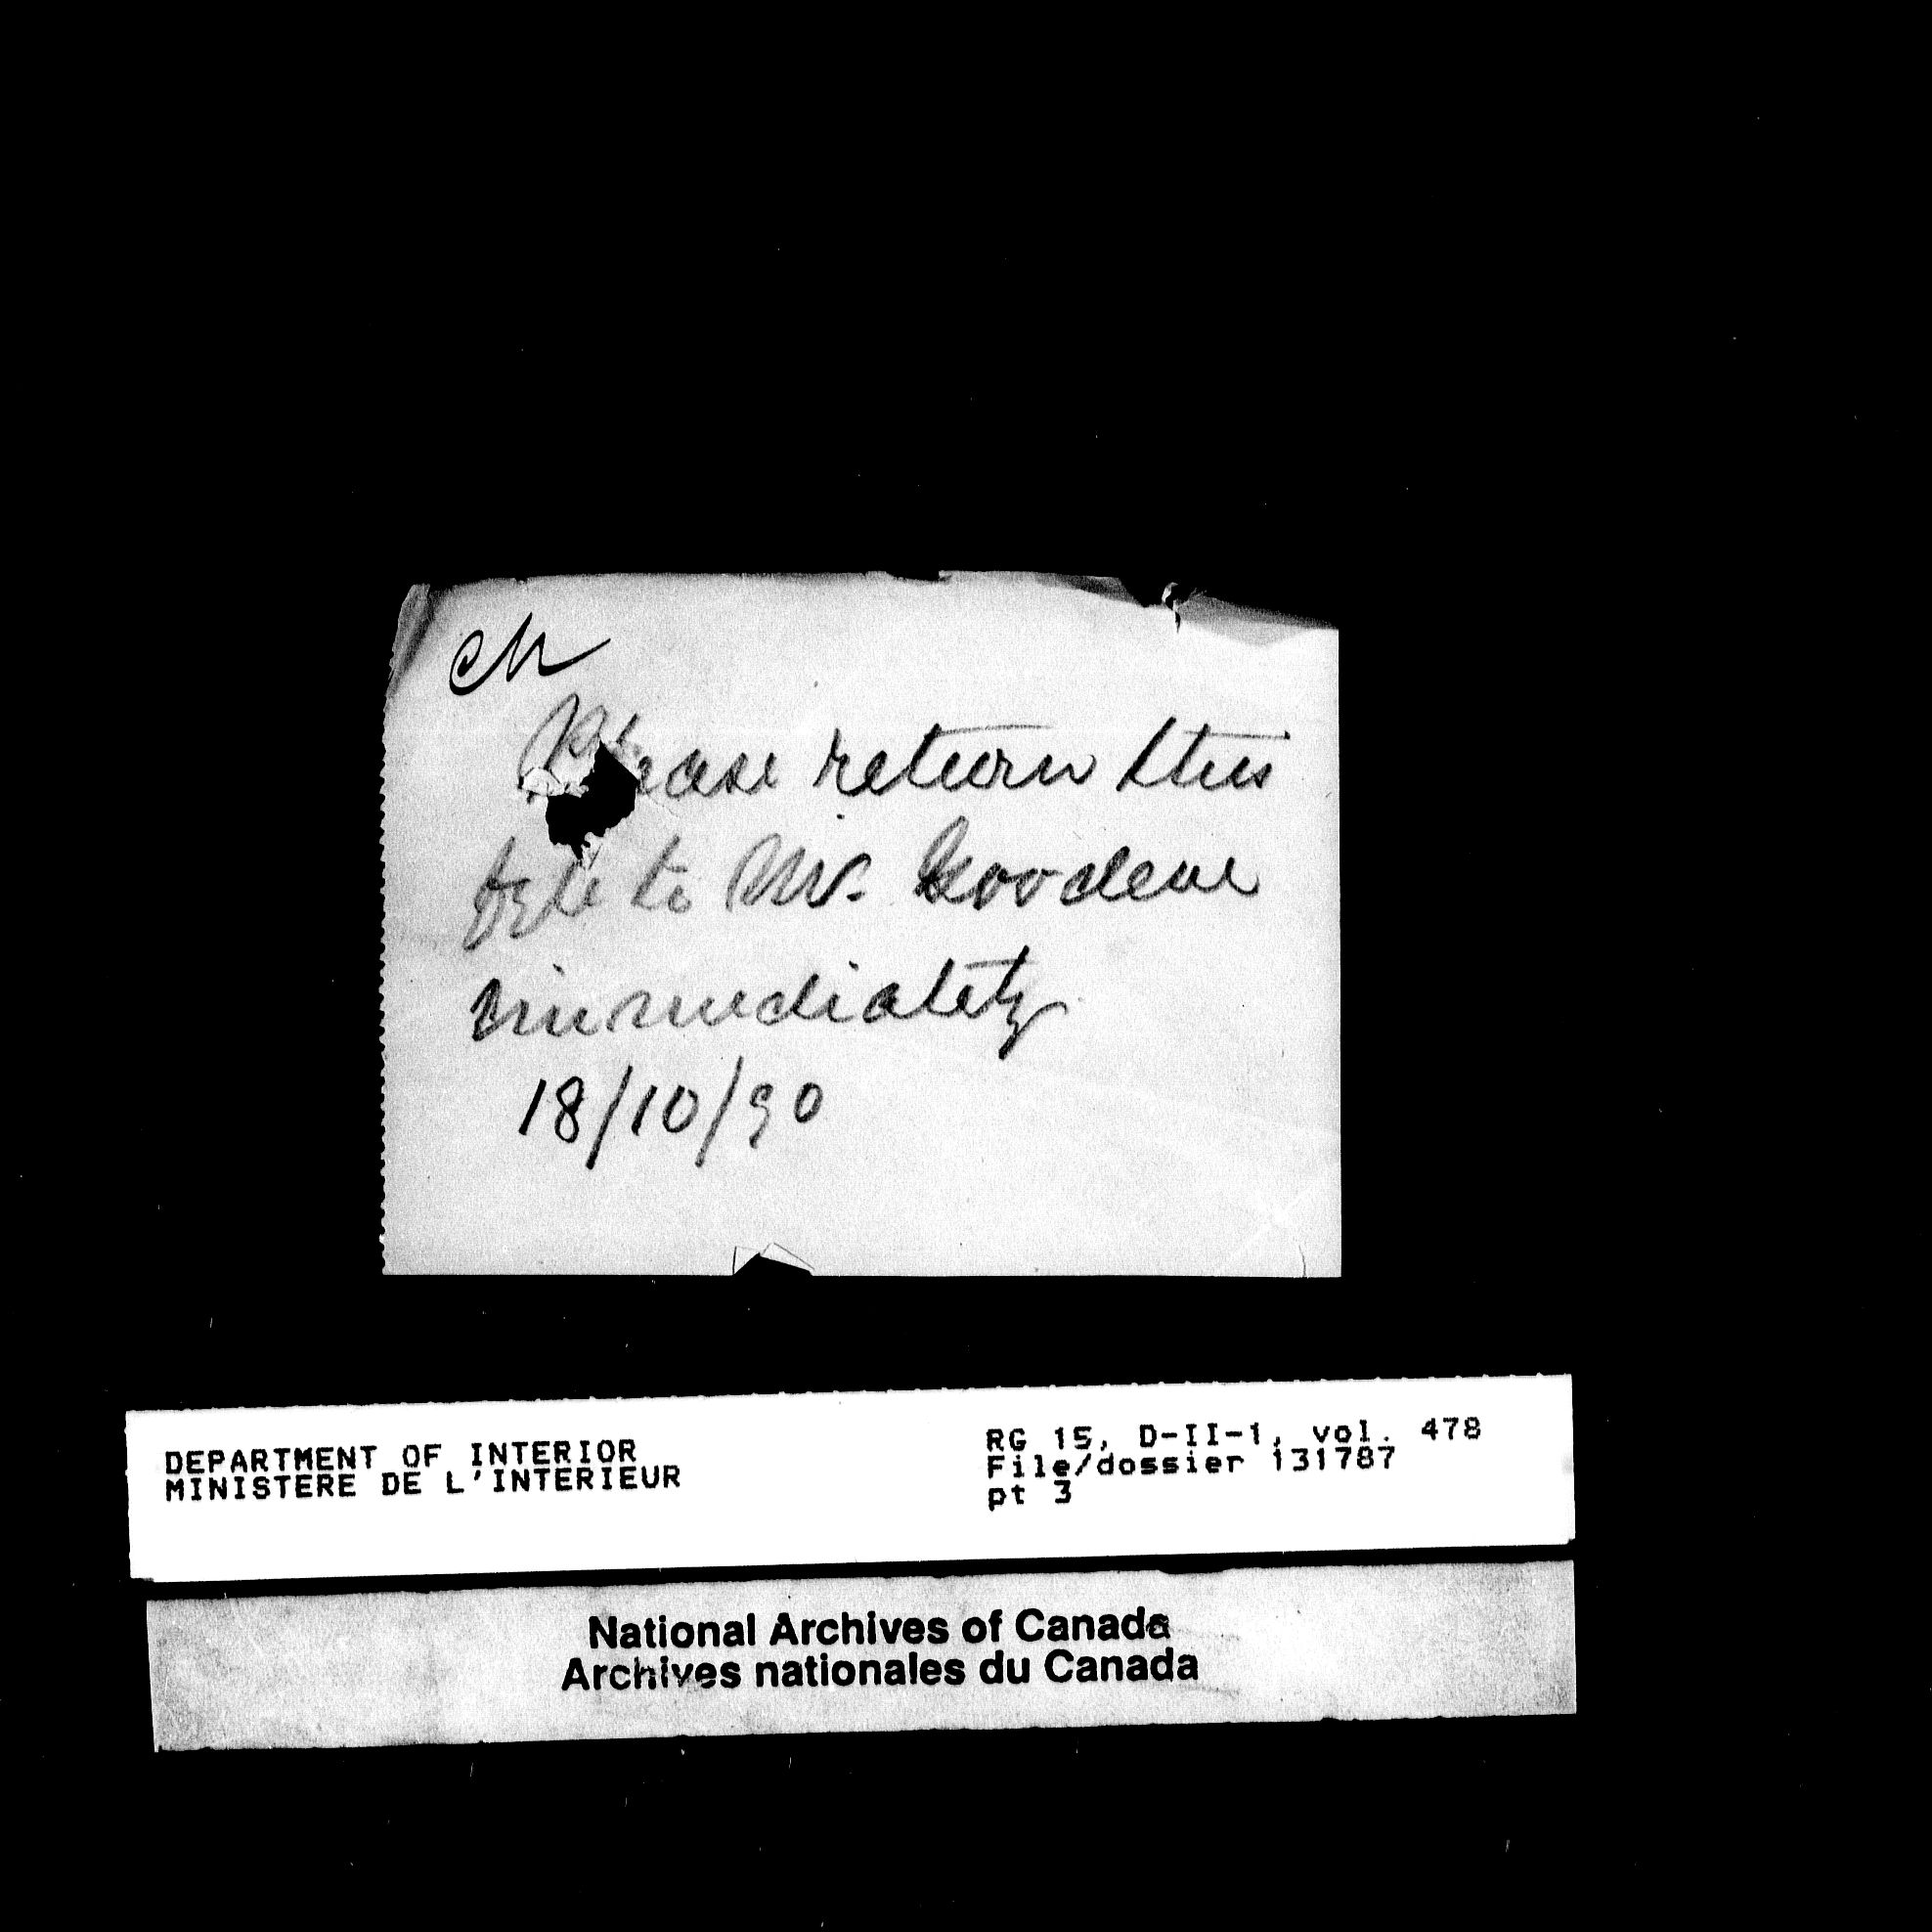 Please return this
file to Mr. Goodeve
immediately
18/10/90
DEPARTMENT OF INTERIOR
MINISTERE DE L'INTERIEUR
RG 15, D-II-1, vol. 478
File/dossier 131787
pt 3
National Archives of Canada
Archives nationales du Canada